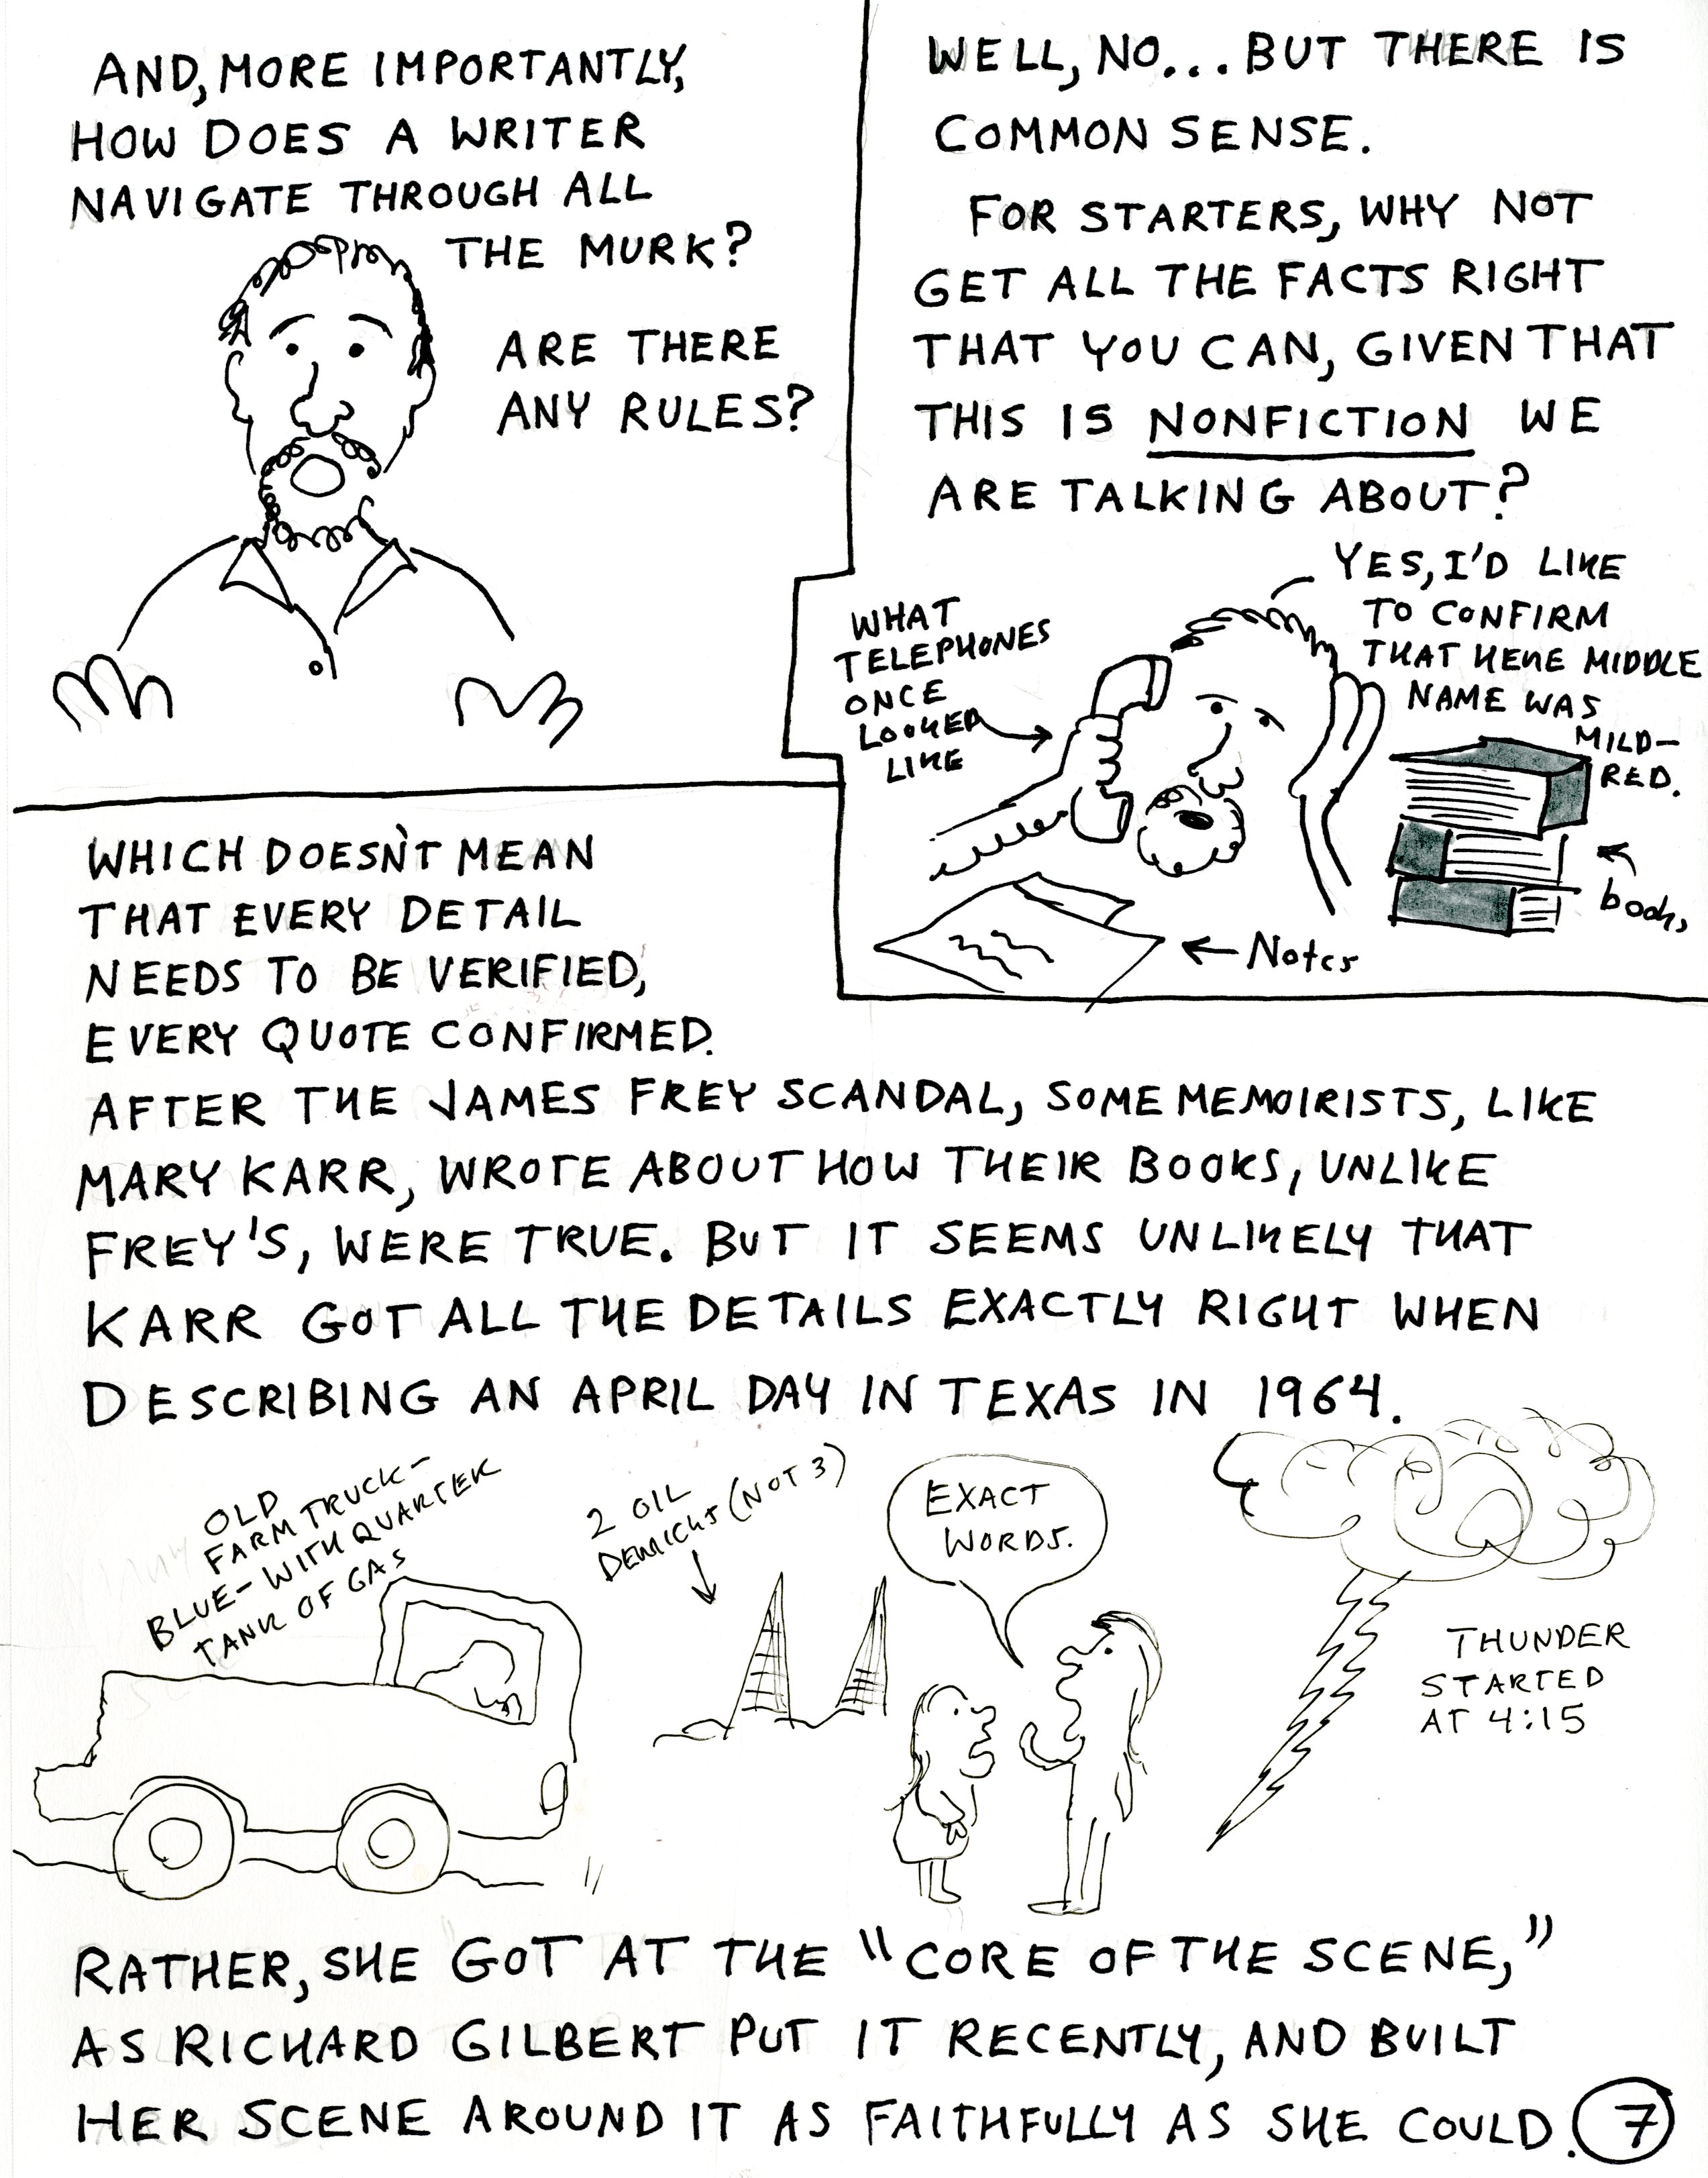 AND, MORE IMPORTANTLY,
HOW DOES A WRITER
NAVIGATE THROUGH ALL
THE MURK?
ARE THERE
ANY RULES?
WELL, NO... BUT THERE IS
COMMON SENSE.
FOR STARTERS, WHY NOT
GET ALL THE FACTS RIGHT
THAT YOU CAN, GIVEN THAT
THIS IS NONFICTION WE
ARE TALKING ABOUT?
YES, I'D LIKE
TO CONFIRM
THAT HERE MIDDLE
NAME WAS
MILD-
RED.
WHAT
TELEPHONES
ONCE
LOOKED
LIKE
books
Notes
WHICH DOESN'T MEAN
THAT EVERY DETAIL
NEEDS TO BE VERIFIED,
EVERY QUOTE CONFIRMED.
AFTER THE JAMES FREY SCANDAL, SOME MEMOIRISTS, LIKE
MARY KARR, WROTE ABOUT HOW THEIR BOOKS, UNLIKE
FREY'S, WERE TRUE. BUT IT SEEMS UNLIKELY THAT
KARR GOT ALL THE DETAILS EXACTLY RIGHT WHEN
DESCRIBING AN APRIL DAY IN TEXAS IN 1964.
OLD
FARM TRUCK-
BLUE- WITH QUARTER
TANK OF GAS
2 OIL
DERRICKS (NOT 3)
EXACT
WORDS.
THUNDER
STARTED
AT 4:15
RATHER, SHE GOT AT THE "CORE OF THE SCENE,"
AS RICHARD GILBERT PUT IT RECENTLY, AND BUILT
HER SCENE AROUND IT AS FAITHFULLY AS SHE COULD.
7